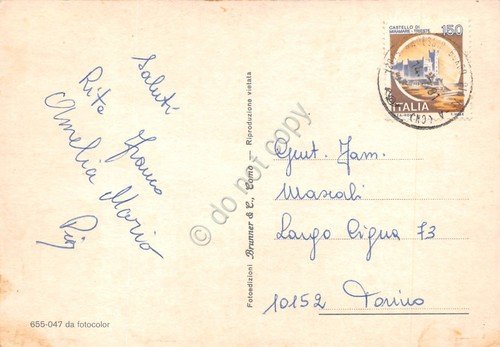 Saluti
Rita Franco
Amelia Mario
Pier
Fotoedizioni Brunner & C., Como — Riproduzione vietata
655-047 da fotocolor
CASTELLO DI
MIRAMARE - TRIESTE
150
ITALIA
Gent. Fam.
Mascali
Largo Cigna 73
10152 Torino
do not copy